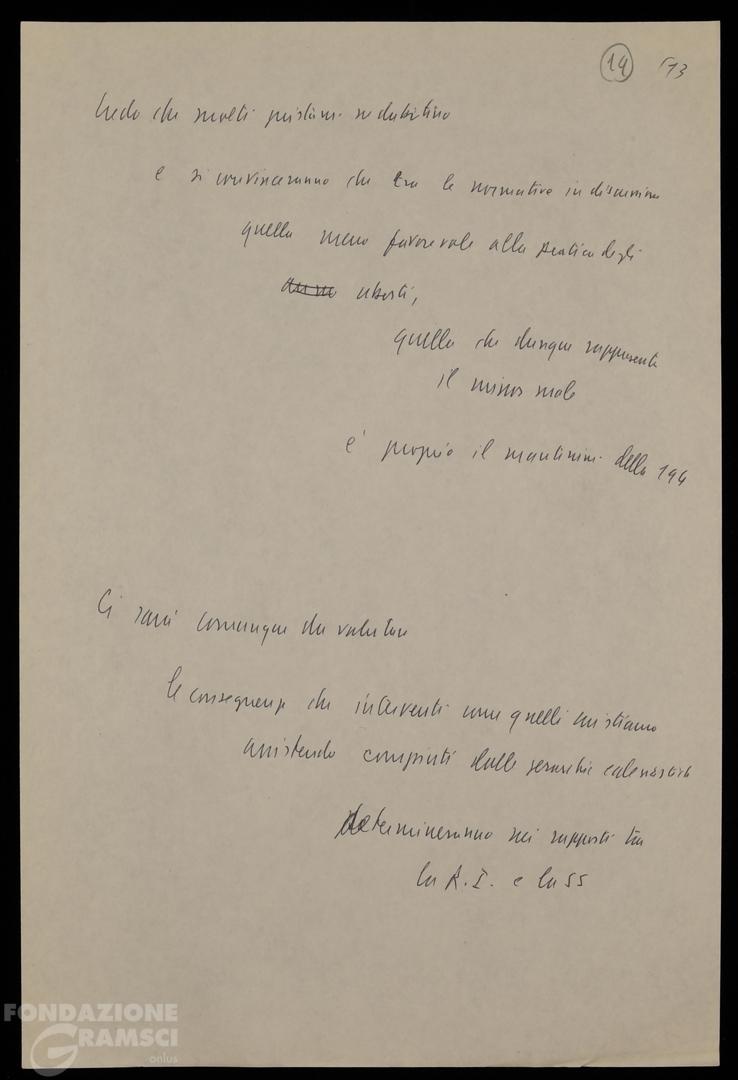 14 573
Credo che molti cristiani ne dubitino
e si convinceranno che tra le normative in discussione
quella meno favorevole alla pratica degli
aborti,
quella che dunque rappresenta
il minor male
è proprio il mantenim. della 194
Ci sarà comunque da valutare
le conseguenze che interventi come quelli cui stiamo
assistendo compiuti dalle gerarchie ecclesiastiche
determineranno nei rapporti tra
la R.I. e la SS
FONDAZIONE
GRAMSCI
onlus